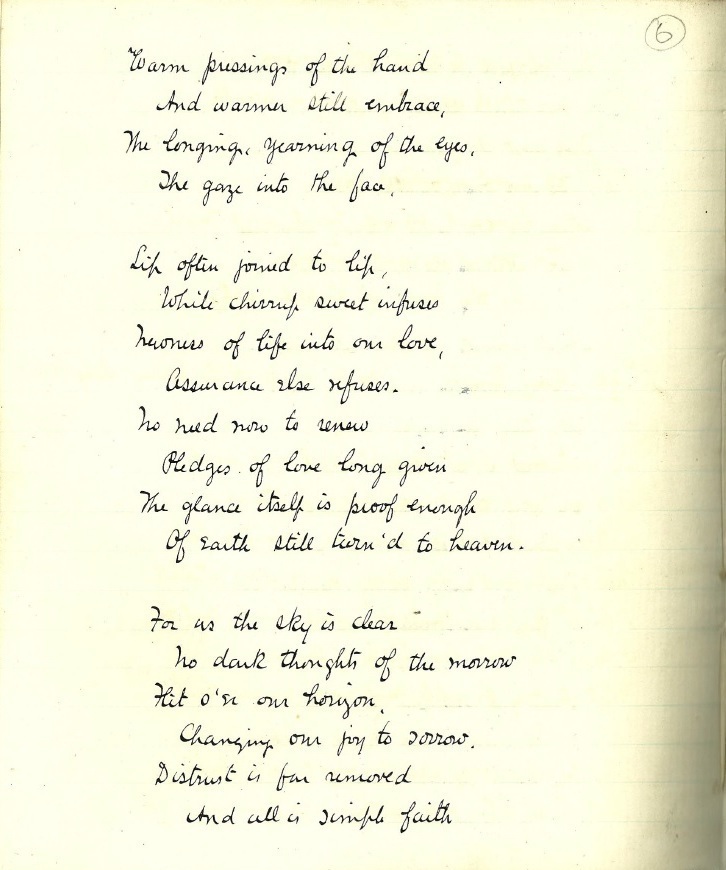 6
Warm pressings of the hand
And warmer still embrace,
The longing, yearning of the eyes,
The gaze into the face.
Lip often joined to lip,
While chirrup sweet infuses
Newness of life into our love,
Assurance else refuses.
No need now to renew
Pledges of love long given
The glance itself is proof enough
Of Earth still turn'd to heaven.
For us the sky is clear
No dark thoughts of the morrow
Flit o'er our horizon,
Changing our joy to sorrow.
Distrust is far removed
And all is simple faith